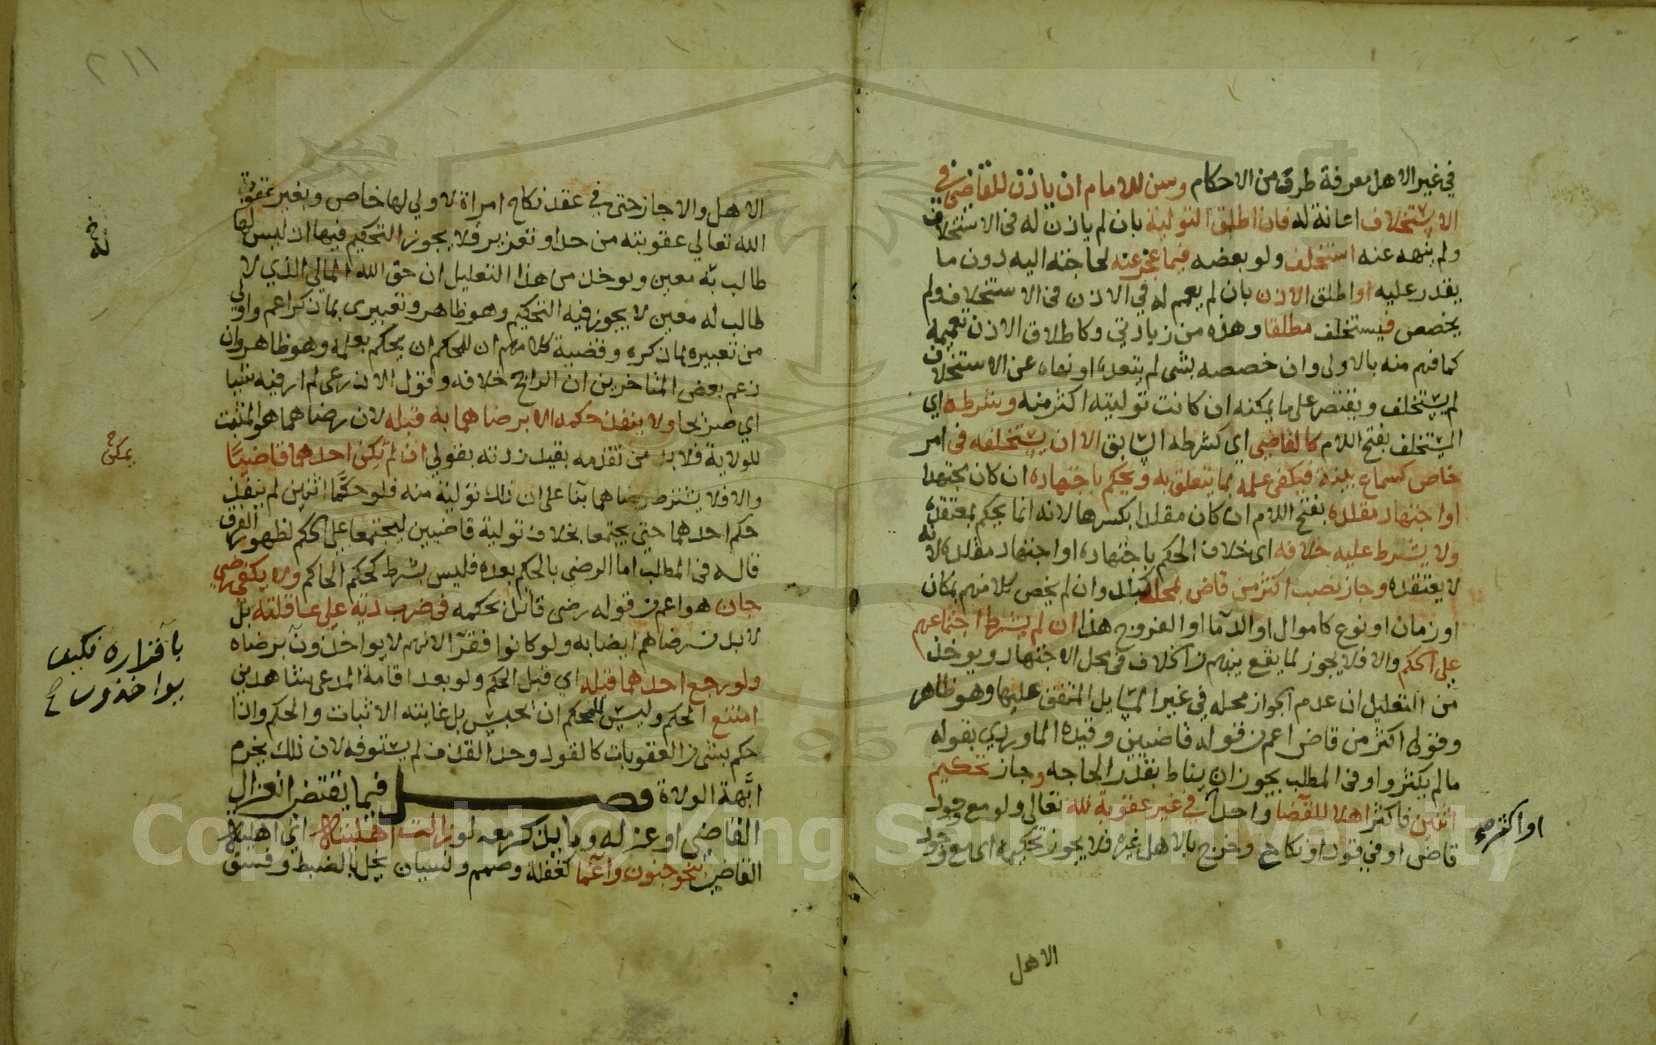 في غير الاهل معرفة طرق من الاحكام وسن للامام ان ياذن للقاضي في
الاستخلاف اعانة له فان اطلق التولية بان لم ياذن له في الاستخلاف
ولم ينهه عنه استخلف ولو بعضه فيما عجز عنه لحاجته اليه دون ما
يقدر عليه او اطلق الاذن بان لم يعمم له في الاذن في الاستخلاف ولم
يخصص فيستخلف مطلقا وهذه من زيادتي وكاطلاق الاذن تعميمه
كما فهم منه بالاولى وان خصصه بشي لم يتعده او نهاه عن الاستخلاف
لم يستخلف ويقتصر على ما يمكنه ان كانت توليته اكثر منه وشرطه اي
المستخلف بفتح اللام كالقاضي اي كشرطه السابق الا ان يستخلفه في امر
خاص كسماع بينة فيكفي علمه بما يتعلق به ويحكم باجتهاده ان كان مجتهدا
او اجتهاد مقلده بفتح اللام ان كان مقلدا بكسرها لانه انما يحكم بمعتقده
ولا يشرط عليه خلافه اى خلاف الحكم باجتهاده او اجتهاد مقلده لانه
لا يعتقده وجاز نصب اكثر من قاض بمحل كبلد وان لم يخص كلا منهم بمكان
او زمان او نوع كاموال او الدما او الفروج هذا ان لم يشرط اجتماعهم
على الحكم والا فلا يجوز لما يقع بينهم من الخلاف في محل الاجتهاد ويوخذ
من التعليل ان عدم الجواز محله في غير المسايل المتفق عليها وهو ظاهر
وقولى اكثر من قاض اعم من قوله قاضيين وقيده الماوردي بقوله
ما لم يكثروا وفى المطلب يجوز ان يناط بقدر الحاجه وجاز تحكيم
اثنين فاكثر اهلا للقضا واحدا في غير عقوبة لله تعالى ولو مع وجود
قاض او في قود او نكاح وخرج بالاهل غيره فلا يجوز تحكيمه اى مع وجود
او اكثر صح
الاهل
٢١١
الاهل والا جاز حتى في عقد نكاح امراة لا ولي لها خاص وبغير عقوبة
الله تعالي عقوبته من حد او تعزير فلا يجوز التحكيم فيها اذ ليس لها
طالب معين ويوخذ من هذا التعليل ان حق الله المالي الذي لا
طالب له معين لا يجوز فيه التحكيم وهو ظاهر وتعبيري بما ذكر اعم واولى
من تعبيره بما ذكره وقضية كلامهم ان للمحكم ان يحكم بعلمه وهو ظاهر وان
زعم بعض المتاخرين ان الراجح خلافه وقول الاذرعى لم ار فيه شيا
اي صريحا ولا ينفذ حكمه الا برضاهما به قبله لان رضاهما هو المثبت
للولاية فلا بد من تقدمه بقيد زدته بقولي ان لم يكن احدهما قاضيا
والا فلا يشترط رضاهما بنا على ان ذلك تولية منه فلو حكما اثنين لم ينفذ
حكم احدهما حتي يجتمعا بخلاف تولية قاضيين ليجتمعا على الحكم لظهور الفرق
قاله في المطلب اما الرضى بالحكم بعده فليس بشرط كحكم الحاكم ولا يكفي رضي
جان هو اعم من قوله رضى قاتل بحكمه في ضرب دية على عاقلته بل
لا بد من رضاهم ايضا به ولو كانوا فقرا لانهم لا يواخذون برضاه
ولو رجع احدهما قبله اي قبل الحكم ولو بعد اقامة المدعى شاهدين
امتنع الحكم وليس للمحكم ان يحبس بل غايته الاثبات والحكم واذا
حكم بشى من العقوبات كالقود وحد القذف لم يستوفه لان ذلك يخرم
ابهة الولاة فصل فيما يقتضي انعزال
القاضي او عزله وما يذكر معه لو زالت اهليته اي اهلية
القاضي بنحو جنون واغما كغفلة وصمم ونسيان يخل بالضبط وفسق
له
يمكن
باقراره فكيف
يواخذون
Copyright © King Saud University
1957